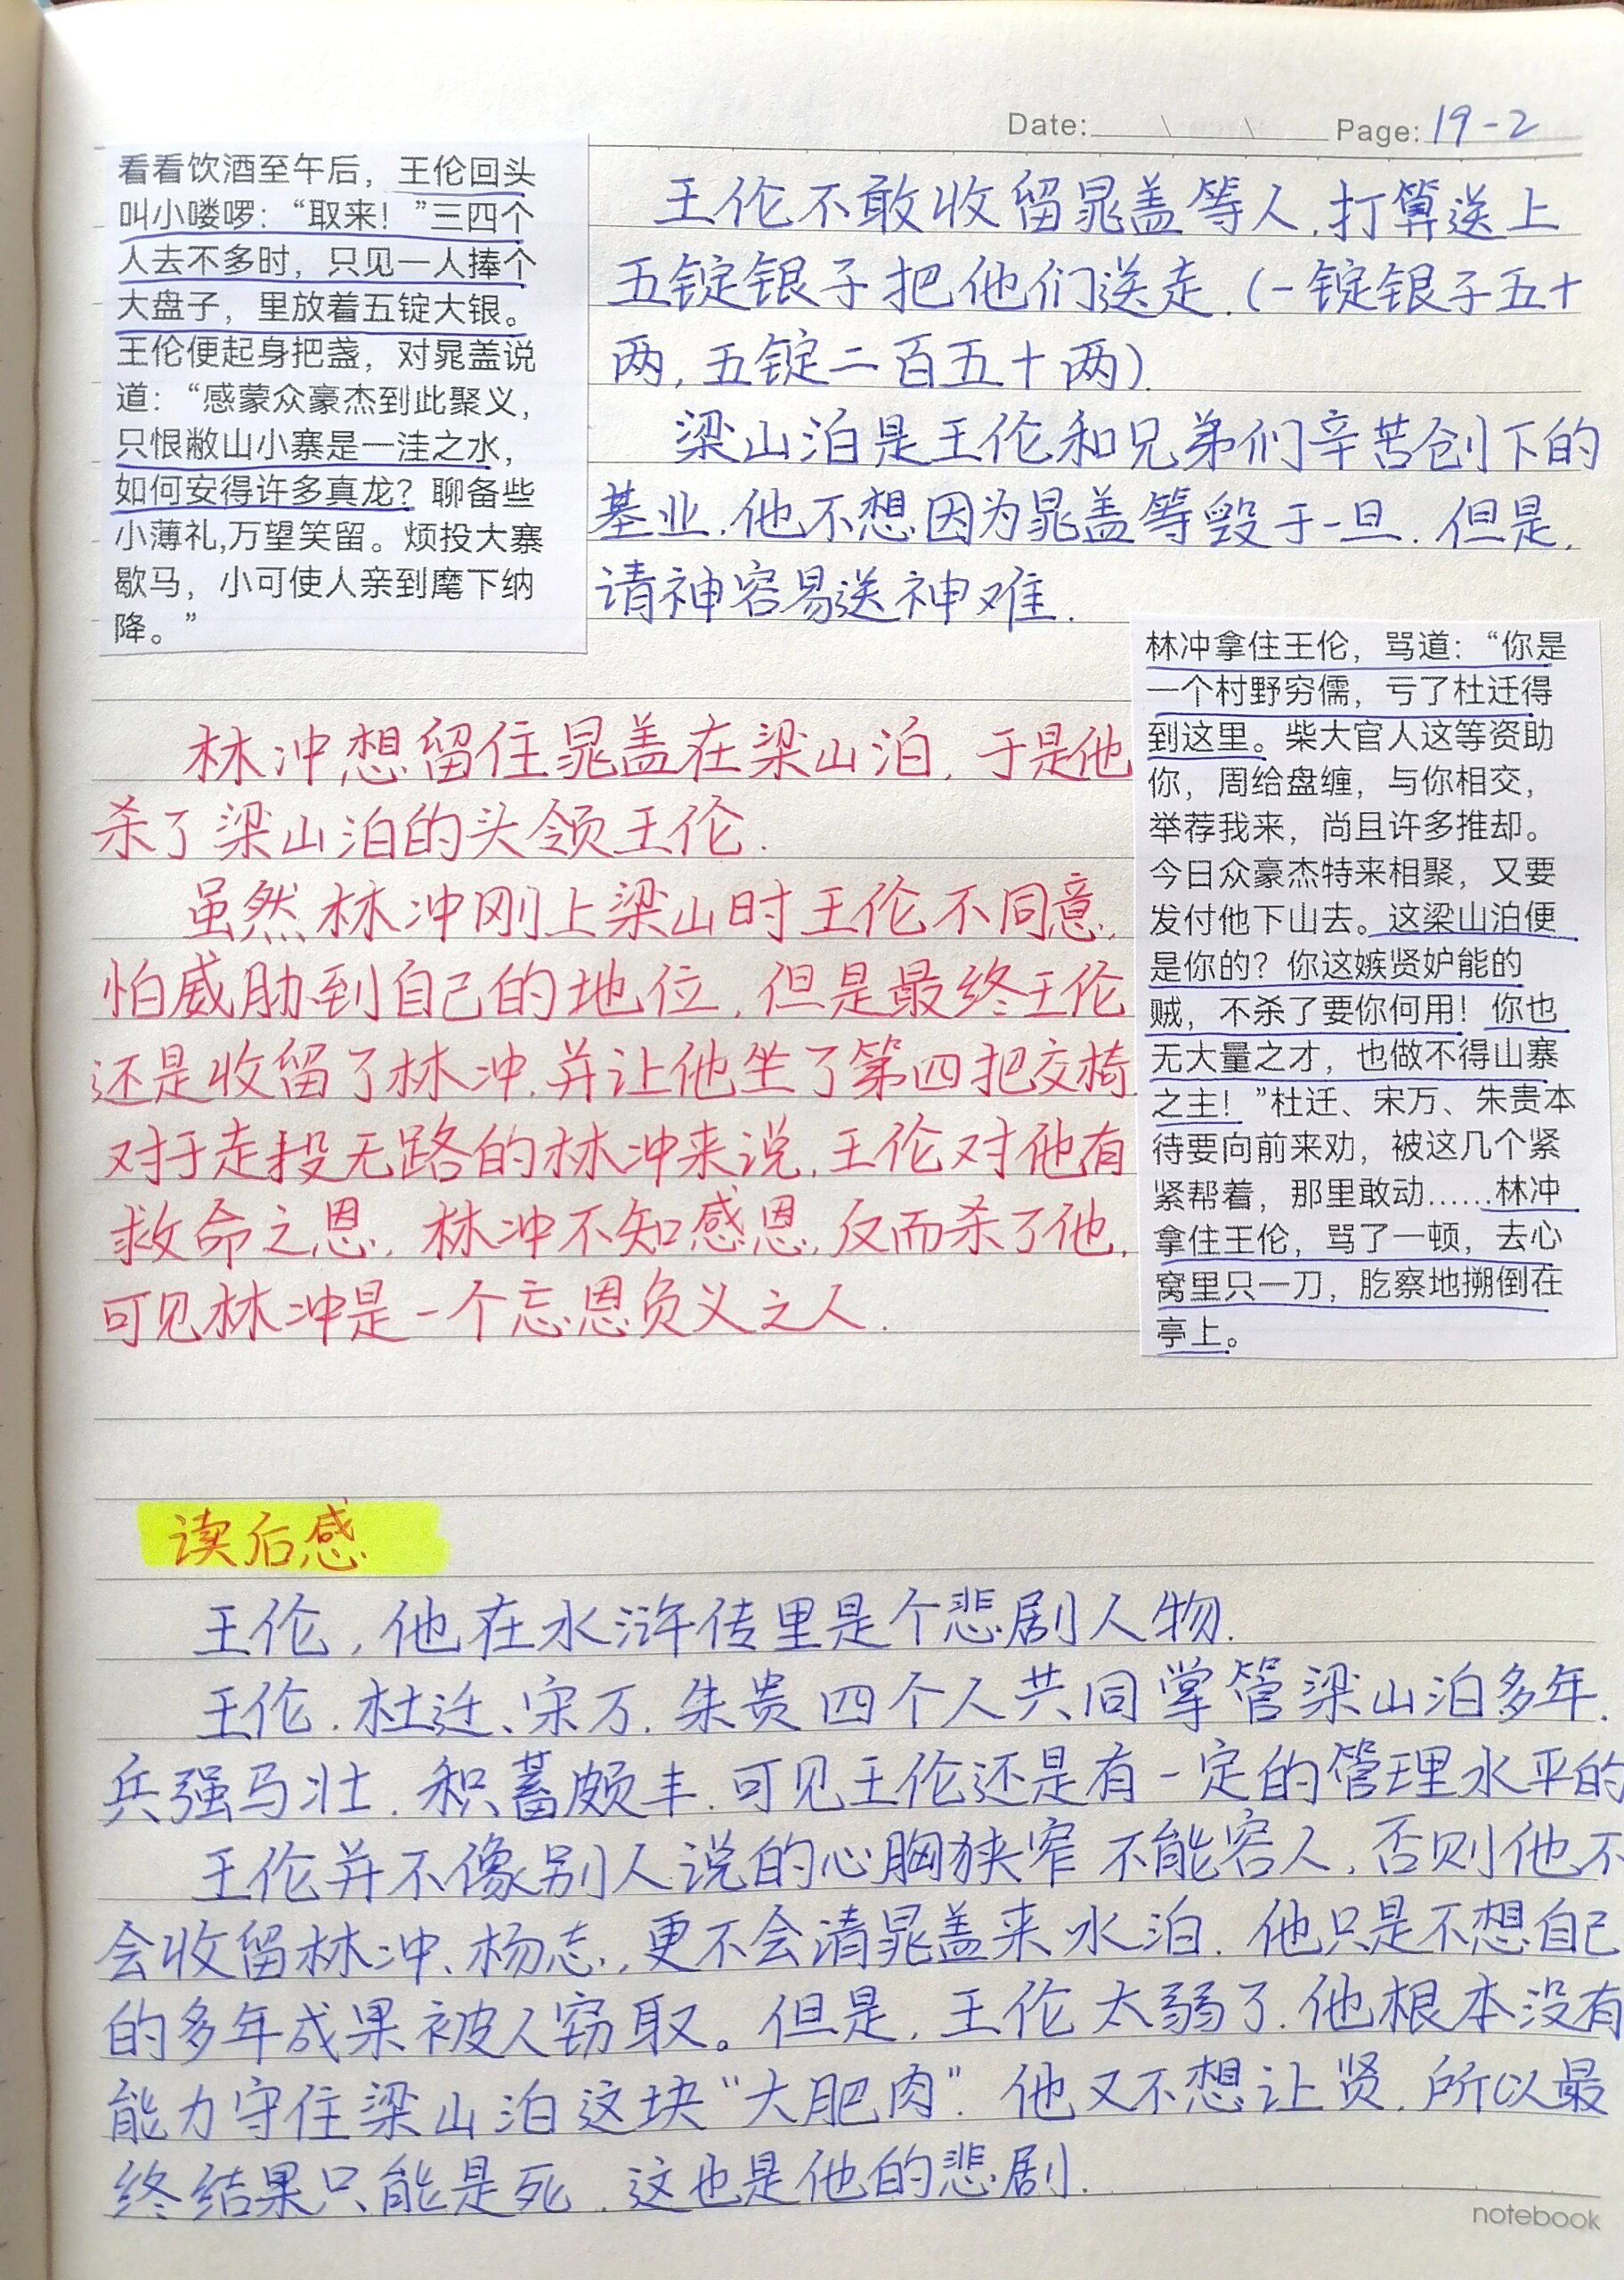 Date: \ \ Page: 19-2
看看饮酒至午后，王伦回头
叫小喽啰：“取来！”三四个
人去不多时，只见一人捧个
大盘子，里放着五锭大银。
王伦便起身把盏，对晁盖说
道：“感蒙众豪杰到此聚义，
只恨敝山小寨是一洼之水，
如何安得许多真龙？聊备些
小薄礼,万望笑留。烦投大寨
歇马，小可使人亲到麾下纳
降。”
王伦不敢收留晁盖等人.打算送上
五锭银子把他们送走.(一锭银子五十
两,五锭二百五十两).
梁山泊是王伦和兄弟们辛苦创下的
基业.他不想因为晁盖等毁于一旦.但是,
请神容易送神难.
林冲想留住晁盖在梁山泊,于是他
杀了梁山泊的头领王伦.
虽然林冲刚上梁山时王伦不同意,
怕威胁到自己的地位,但是最终王伦
还是收留了林冲.并让他坐了第四把交椅
对于走投无路的林冲来说,王伦对他有
救命之恩.林冲不知感恩,反而杀了他,
可见林冲是一个忘恩负义之人.
林冲拿住王伦，骂道：“你是
一个村野穷儒，亏了杜迁得
到这里。柴大官人这等资助
你，周给盘缠，与你相交，
举荐我来，尚且许多推却。
今日众豪杰特来相聚，又要
发付他下山去。这梁山泊便
是你的？你这嫉贤妒能的
贼，不杀了要你何用！你也
无大量之才，也做不得山寨
之主！”杜迁、宋万、朱贵本
待要向前来劝，被这几个紧
紧帮着，那里敢动……林冲
拿住王伦，骂了一顿，去心
窝里只一刀，肐察地搠倒在
亭上。
读后感
王伦,他在水浒传里是个悲剧人物.
王伦.杜迁、宋万.朱贵四个人共同掌管梁山泊多年.
兵强马壮.积蓄颇丰.可见王伦还是有一定的管理水平的
王伦并不像别人说的心胸狭窄 不能容人.否则他不
会收留林冲、杨志.更不会清晁盖来水泊.他只是不想自己
的多年成果被人窃取。但是.王伦太弱了.他根本没有
能力守住梁山泊这块“大肥肉”.他又不想让贤.所以最
终结果只能是死.这也是他的悲剧.
notebook